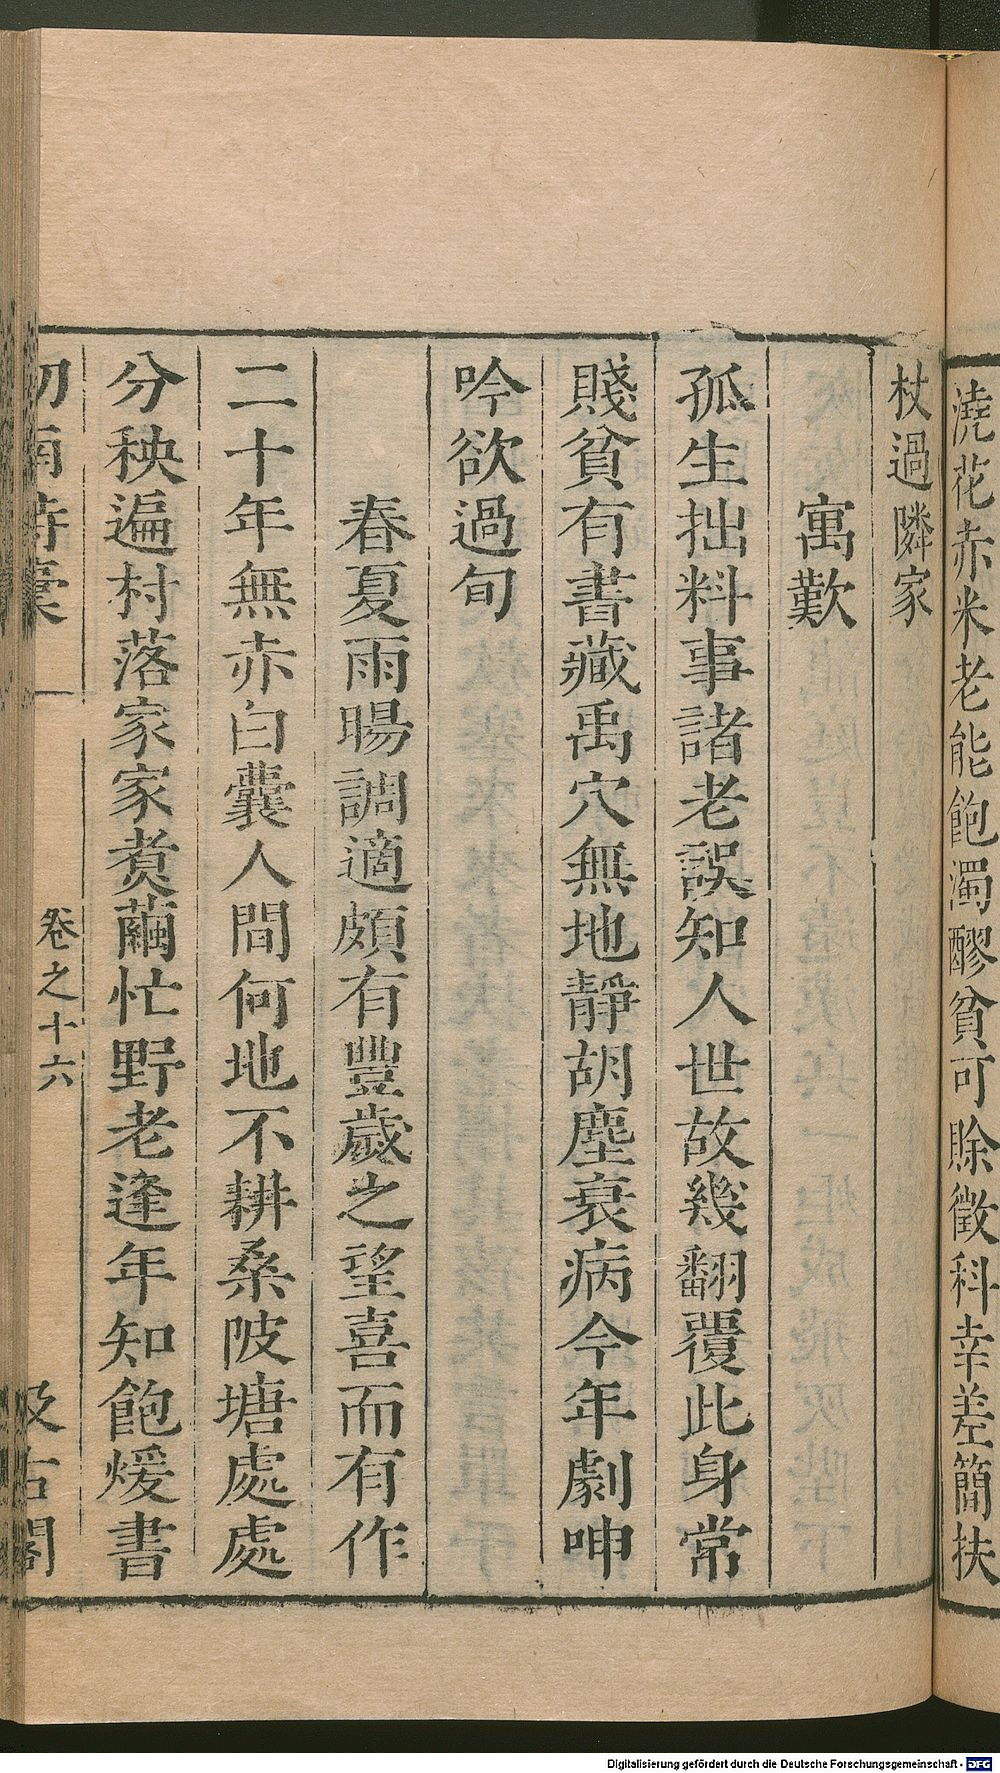 澆花赤米老能飽濁醪貧可賒徵科幸差簡扶
杖過隣家
寓歎
孤生拙料事諸老誤知人世故幾翻覆此身常
賤貧有書藏禹穴無地靜胡塵衰病今年劇呻
吟欲過旬
春夏雨暘調適頗有豐歲之望喜而有作
二十年無赤白囊人間何地不耕桑陂塘處處
分秧遍村落家家煑繭忙野老逢年知飽煖書
劒南詩稾
卷之十六
汲古閣
Digitalisierung gefördert durch die Deutsche Forschungsgemeinschaft - DFG